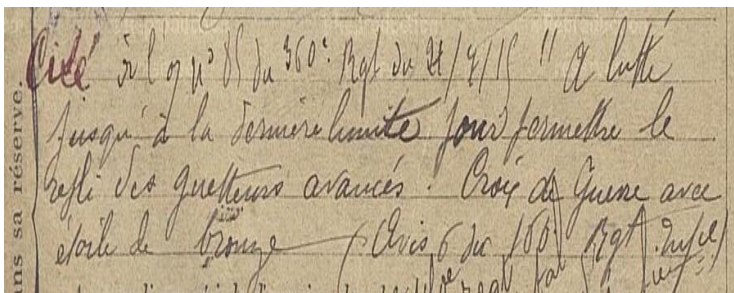 Cité à l'o/ n° 85 du 360e Rgt du 21/7/15 " A lutté
jusqu'à la dernière limite pour permettre le
repli des guetteurs avancés. Croix de Guerre avec
étoile de bronze (Avis 6 du 160 Rgt Infie)
ans sa réserve.